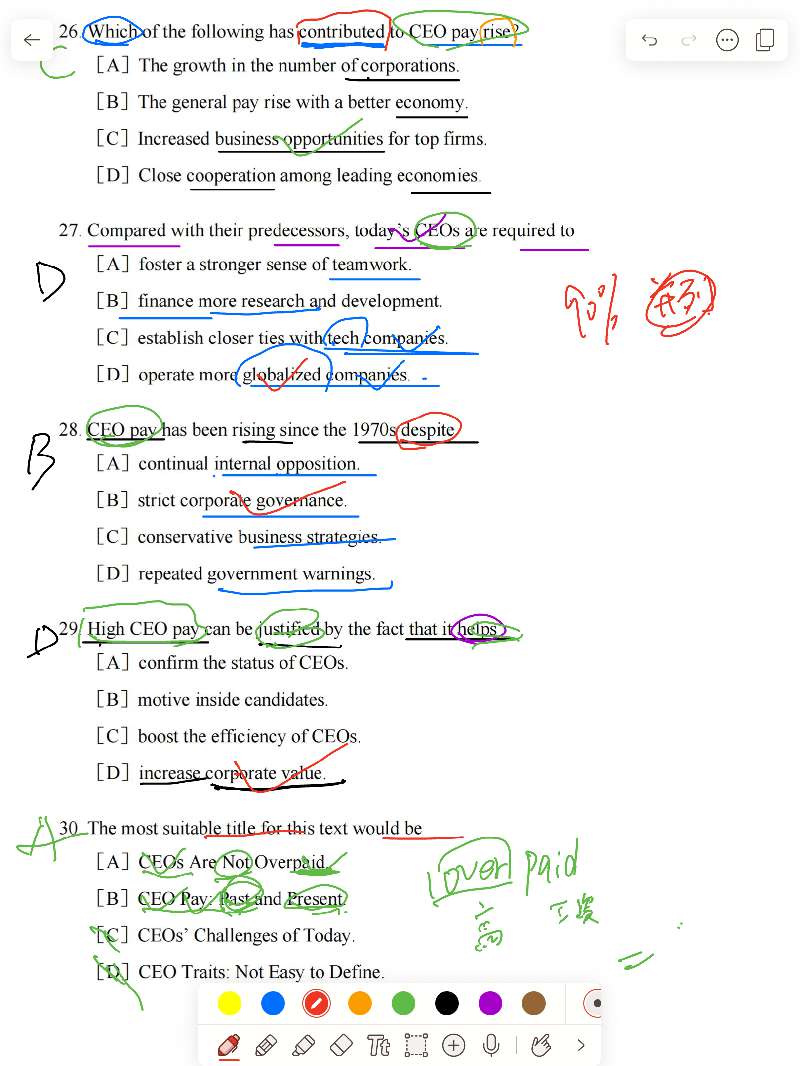 26. Which of the following has contributed to CEO pay rise?
C
[A] The growth in the number of corporations.
[B] The general pay rise with a better economy.
[C] Increased business opportunities for top firms.
[D] Close cooperation among leading economies.
27. Compared with their predecessors, today's CEOs are required to
D
[A] foster a stronger sense of teamwork.
[B] finance more research and development.
[C] establish closer ties with tech companies.
[D] operate more globalized companies.
90%
28. CEO pay has been rising since the 1970s despite
B
[A] continual internal opposition.
[B] strict corporate governance.
[C] conservative business strategies.
[D] repeated government warnings.
29. High CEO pay can be justified by the fact that it helps
D
[A] confirm the status of CEOs.
[B] motive inside candidates.
[C] boost the efficiency of CEOs.
[D] increase corporate value.
30. The most suitable title for this text would be
A
[A] CEOs Are Not Overpaid.
[B] CEO Pay: Past and Present.
[C] CEOs' Challenges of Today.
[D] CEO Traits: Not Easy to Define.
over paid
高 工资
Tt